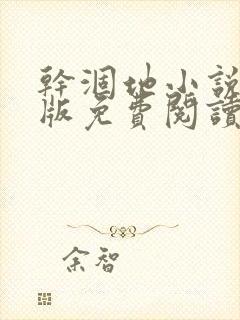 幹涸地小說
版免費閱讀
余智